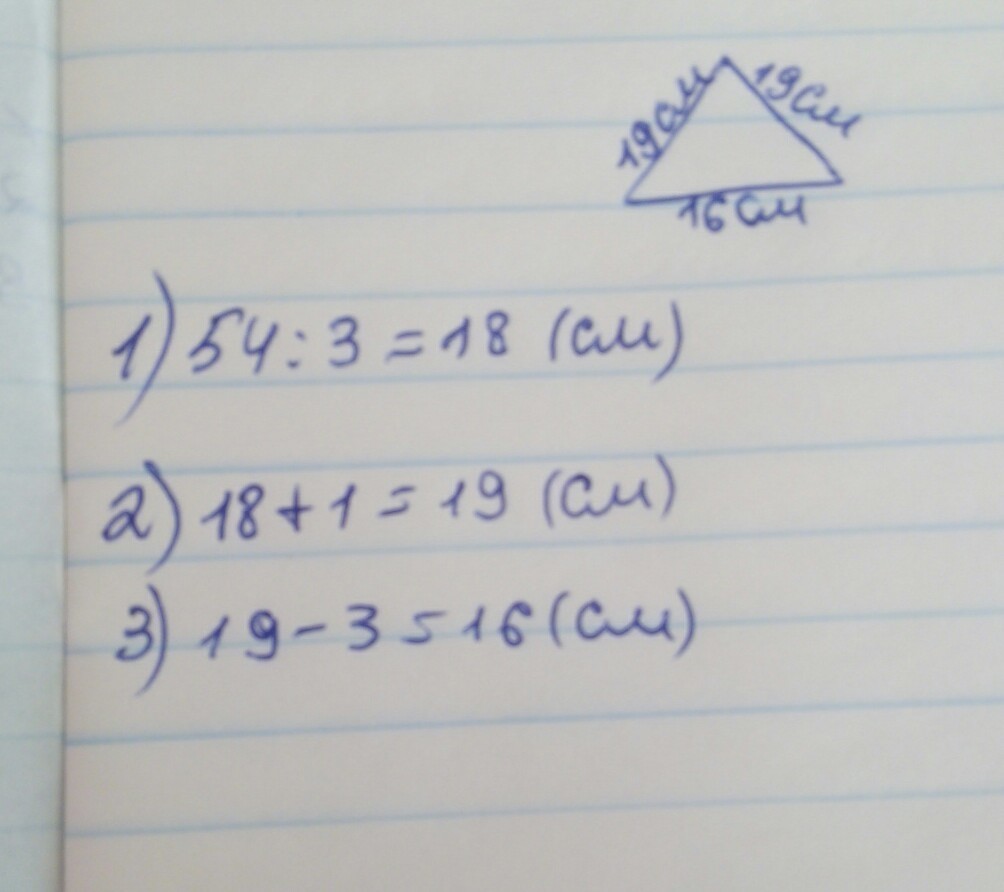 19см
19см
16см
1) 54 : 3 = 18 (см)
2) 18 + 1 = 19 (см)
3) 19 - 3 = 16 (см)